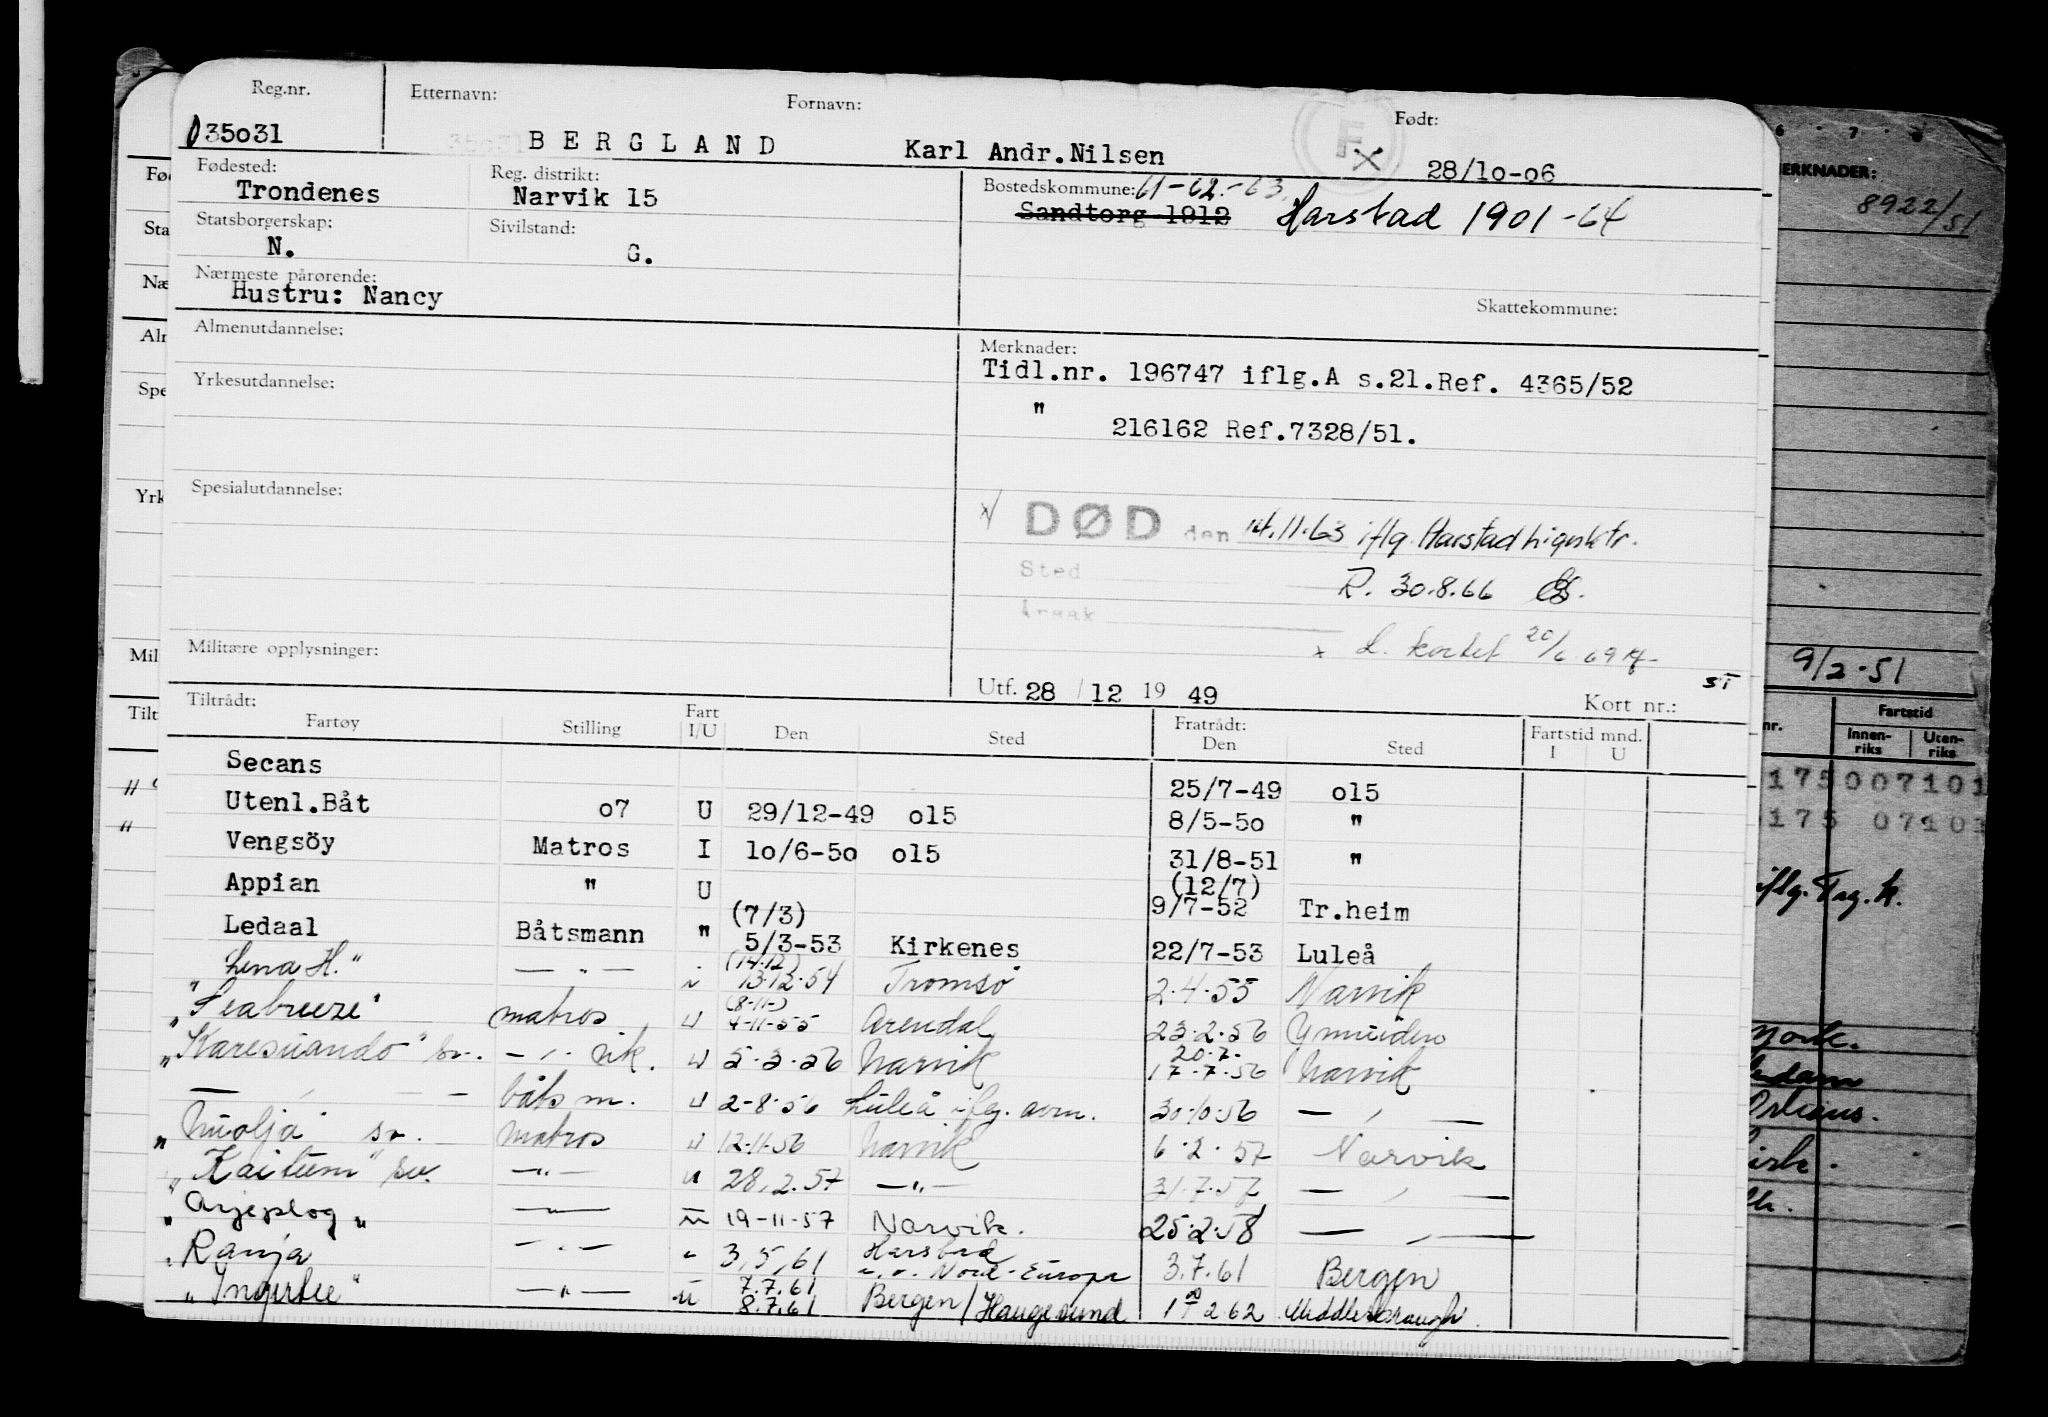 Reg.nr. Etternavn: Fornavn: Født:
035031 BERGLAND Karl Andr.Nilsen 28/10-06
Fødested: Reg. distrikt: Bostedskommune: 61-62-63
Trondenes Narvik 15 Sandtorg 1912 Harstad 1901-64
Statsborgerskap: Sivilstand:
N. G.
Nærmeste pårørende:
Hustru: Nancy
Skattekommune:
Almenutdannelse:
Merknader:
Tidl.nr. 196747 iflg.A s.21.Ref. 4365/52
" 216162 Ref.7328/51.
Yrkesutdannelse:
Spesialutdannelse:
DØD den 14.11.63 iflg. Harstad lignktr.
Sted R. 30.8.66
Årsak
L. kortet 20/6 69
Militære opplysninger:
Utf. 28 / 12 19 49 Kort nr.:
Tiltrådt: Fratrådt: Fartstid mnd.
Fartøy Stilling Fart I/U Den Sted Den Sted I U
Secans 25/7-49 o15
Utenl.Båt o7 U 29/12-49 o15 8/5-50 "
Vengsöy Matros I 10/6-50 o15 31/8-51 "
Appian " U (12/7) 9/7-52 Tr.heim
Ledaal Båtsmann " (7/3) 5/3-53 Kirkenes 22/7-53 Luleå
"Lena H." — " — (14.12) 13.12.54 Tromsø 2.4.55 Narvik
"Seabreeze" matros U (8-11-) 4-11-55 Arendal 23.2.56 Ymuiden
"Karesuando" sv. - " - vik. U 5.3.56 Narvik 20.7. 17.7.56 Narvik
— " — båtsm. U 2-8-56 Luleå iflg. avm. 30.10.56 — " —
"Nuolja sv. matros U 12.11.56 Narvik 6.2.57 Narvik
"Kaitum" sv. — " — U 28.2.57 — " — 31.7.57 — " —
"Arjeplog" — " — U 19-11-57 Narvik. 25.2.58 — " —
"Ranja — " — " 3.5.61 Harstad Nord-Europa 3.7.61 Bergen
"Ingertre" — " — U 7.7.61 8.7.61 Bergen/Haugesund 2.62 Middlesbrough
MERKNADER:
8922/51
9/2-51
Fartstid
Innen-riks Uten-riks
175007101
175 07101
iflg.